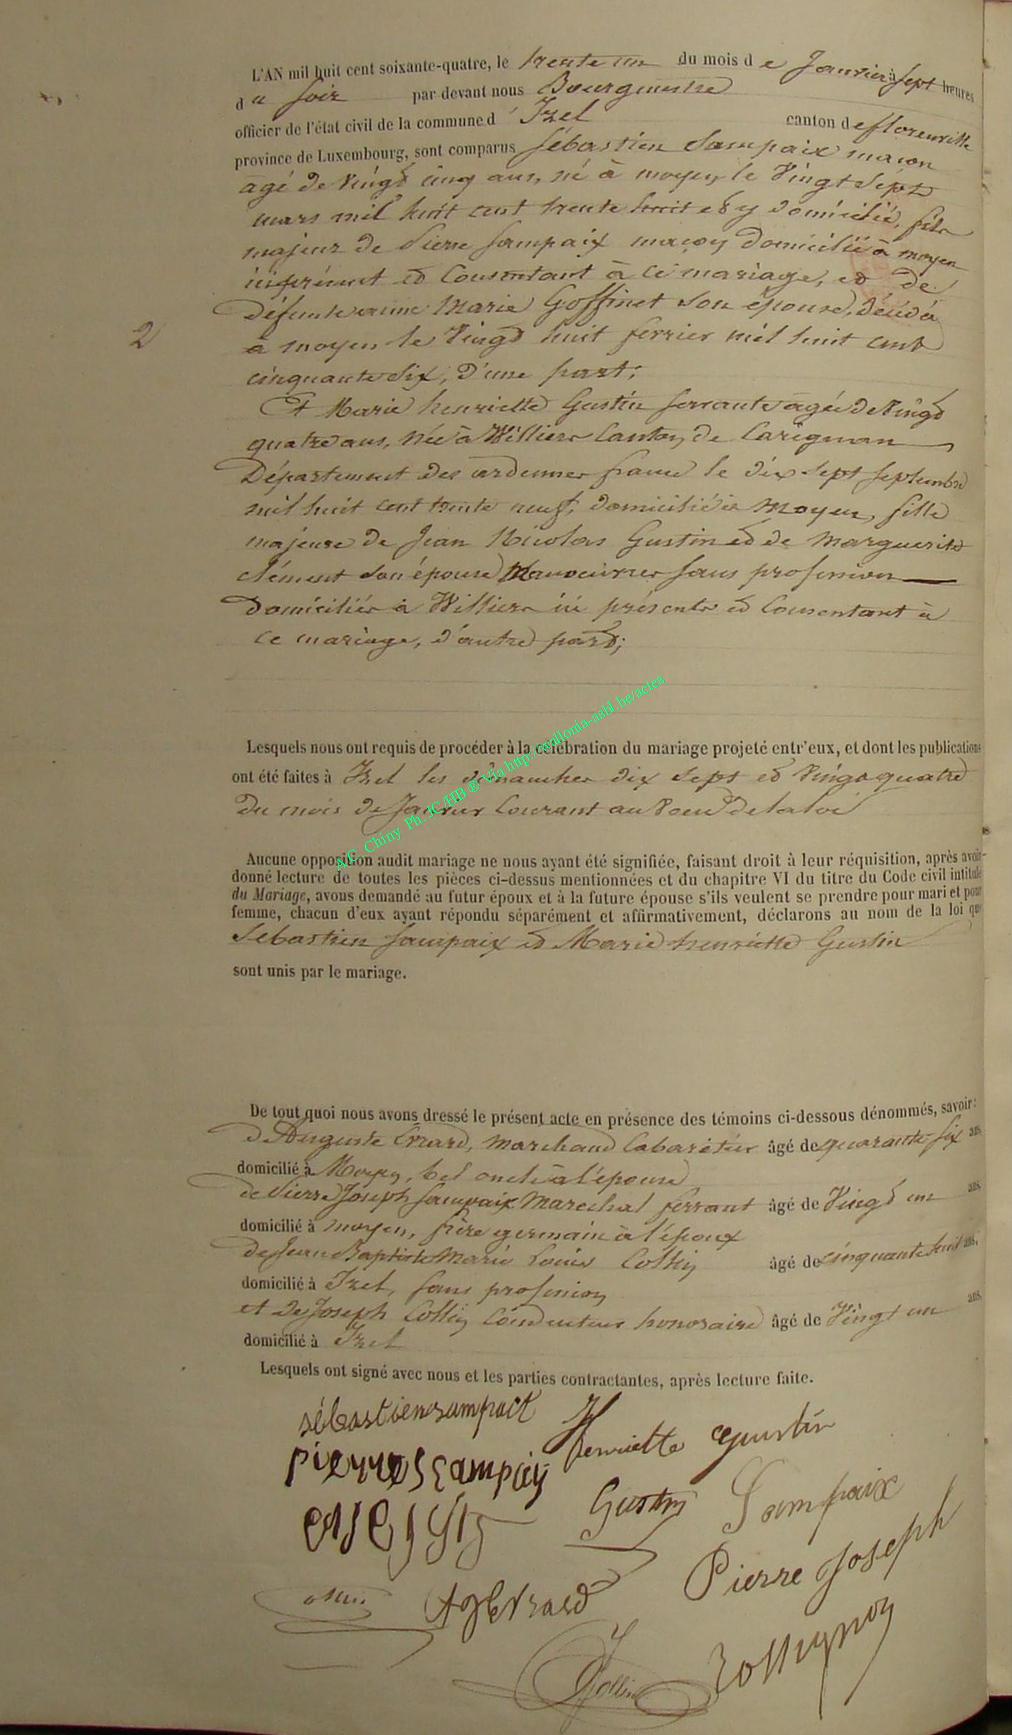 L'AN mil huit cent soixante-quatre, le trente un du mois d e Janvier à sept heures
d u soir par devant nous Bourgmestre
officier de l'état civil de la commune d' Izel canton de florenville
province de Luxembourg, sont comparus Sébastien Sampaix maçon
agé de Vingt cinq ans, né à moyen le Vingt Sept
mars mil huit cent trente huit et y domicilié, fils
majeur de Pierre Sampaix maçon domicilié à moyen
ici présent et Consentant à ce mariage, et de
défunte anne Marie Goffinet son épouse, décédée
à moyen le Vingt huit fevrier mil huit cent
2
cinquante Six, d'une part;
Et Marie henriette Gustin servante agée de Vingt
quatre ans, née à Williers Canton de Carignan
Département des ardennes france le dix sept septembre
mil huit cent trente neuf, domiciliée à moyen, fille
majeure de Jean Nicolas Gustin et de Marguerite
clément son épouse Manoeuvrier sans profession
Domiciliés à Williers ici présents et Consentant à
ce mariage, d'autre part;
Lesquels nous ont requis de procéder à la célébration du mariage projeté entr'eux, et dont les publications
ont été faites à Izel les dimanches dix sept et Vingt quatre
du mois de Janvier Courant au Voeu de la loi
A.C. Chiny Ph. JC/HB @ via http://cedlonia-asbl.be/actes
Aucune opposition audit mariage ne nous ayant été signifiée, faisant droit à leur réquisition, après avoir
donné lecture de toutes les pièces ci-dessus mentionnées et du chapitre VI du titre du Code civil intitulé
du Mariage, avons demandé au futur époux et à la future épouse s'ils veulent se prendre pour mari et pour
femme, chacun d'eux ayant répondu séparément et affirmativement, déclarons au nom de la loi que
Sébastien Sampaix et Marie henriette Gustin
sont unis par le mariage.
De tout quoi nous avons dressé le présent acte en présence des témoins ci-dessous dénommés, savoir:
d'Auguste Evrard, marchand Cabaretier âgé de quarante six ans
domicilié à Moyen, bel oncle à l'épouse
de Pierre Joseph Sampaix Marechal ferrant âgé de Vingt un ans
domicilié à moyen, frère germain à l'époux
de Jean Baptiste Marie Louis Collin âgé de cinquante huit ans.
domicilié à Izel, sans profession
et de Joseph Collin Conducteur honoraire âgé de Vingt un ans
domicilié à Izel
Lesquels ont signé avec nous et les parties contractantes, après lecture faite.
sébastien sampact Henriette Gustin
pierre
Gustin Sampaix
Pierre Joseph
Collin